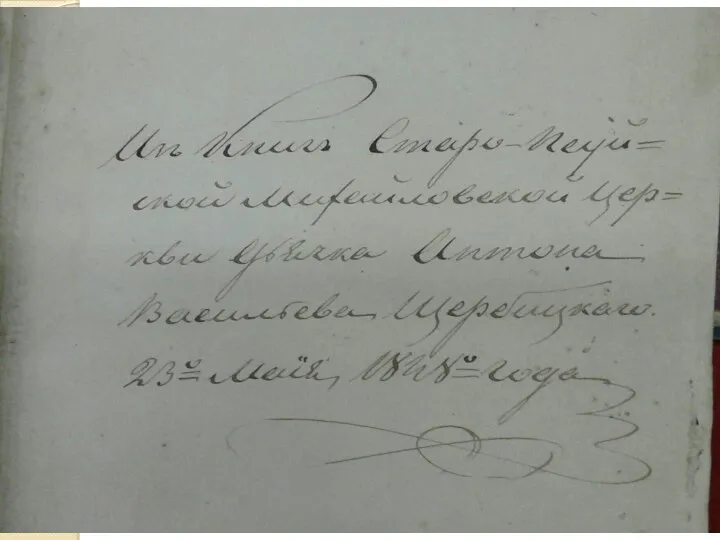 Изъ Книгъ Старо-
ской Михайловской Цер=
кви Дьячка Антона
Васильева Щербицкаго.
23º Маія, 1848º года